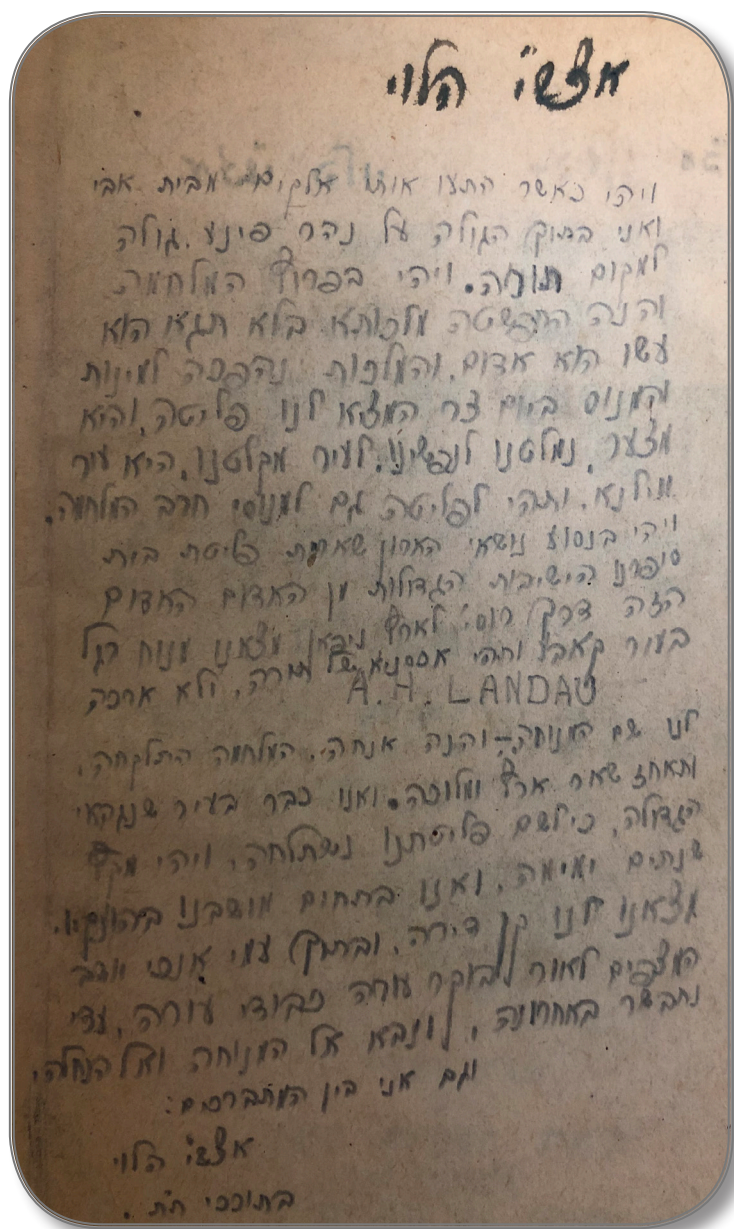 אצשי הלוי
ויהי כאשר התעו אותי אלקים מבית אבי
ואני בתוך הגולה על נהר פינע. גולה
למקום תורה. ויהי בפרוץ המלחמה
והנה התפשטה מלכותא בלא תגא הוא
עשו הוא אדום. והמלכות נהפכה למינות
והמנוס ביום צר המצא לנו פליטה, והיא
מצער. נמלטנו לנפשינו. לעיר מקלטנו. היא עיר
ווילנא. ותהי לפליטה גם למנוסי חרב המלחמה.
ויהי בנסוע נושאי הארון שארית פליטת בית
סיפרנו הישיבות הגדולות מן האדום האדום
הזה דרך רוסי' לארץ ניפאן מצאנו מנוח רגל
בעיר קאבע ותהי אכסניא של תורה. ולא ארכה
A. H. LANDAU
לנו שם המנוחה – והנה אנחה. המלחמה התלקחה,
ותאחז שאר ארץ ומלוכה. ואנו כבר בעיר שנגהאי
הגדולה, כי לשם פליטתנו נשתלחה. ויהי מקץ
שנתים ימימה. ואנו בתחום מושבנו בהונקיו.
מצאנו לנו קן דירה. ובתוך עמי אנכי יושב
המצפים לאור לבוקר עורה כבודי עורה. עדי
נתבשר באחרונה, ונבא אל המנוחה ואל הנחלה.
וגם אני בין המתברכים:
אצשי הלוי
בתומכי ת"ת.